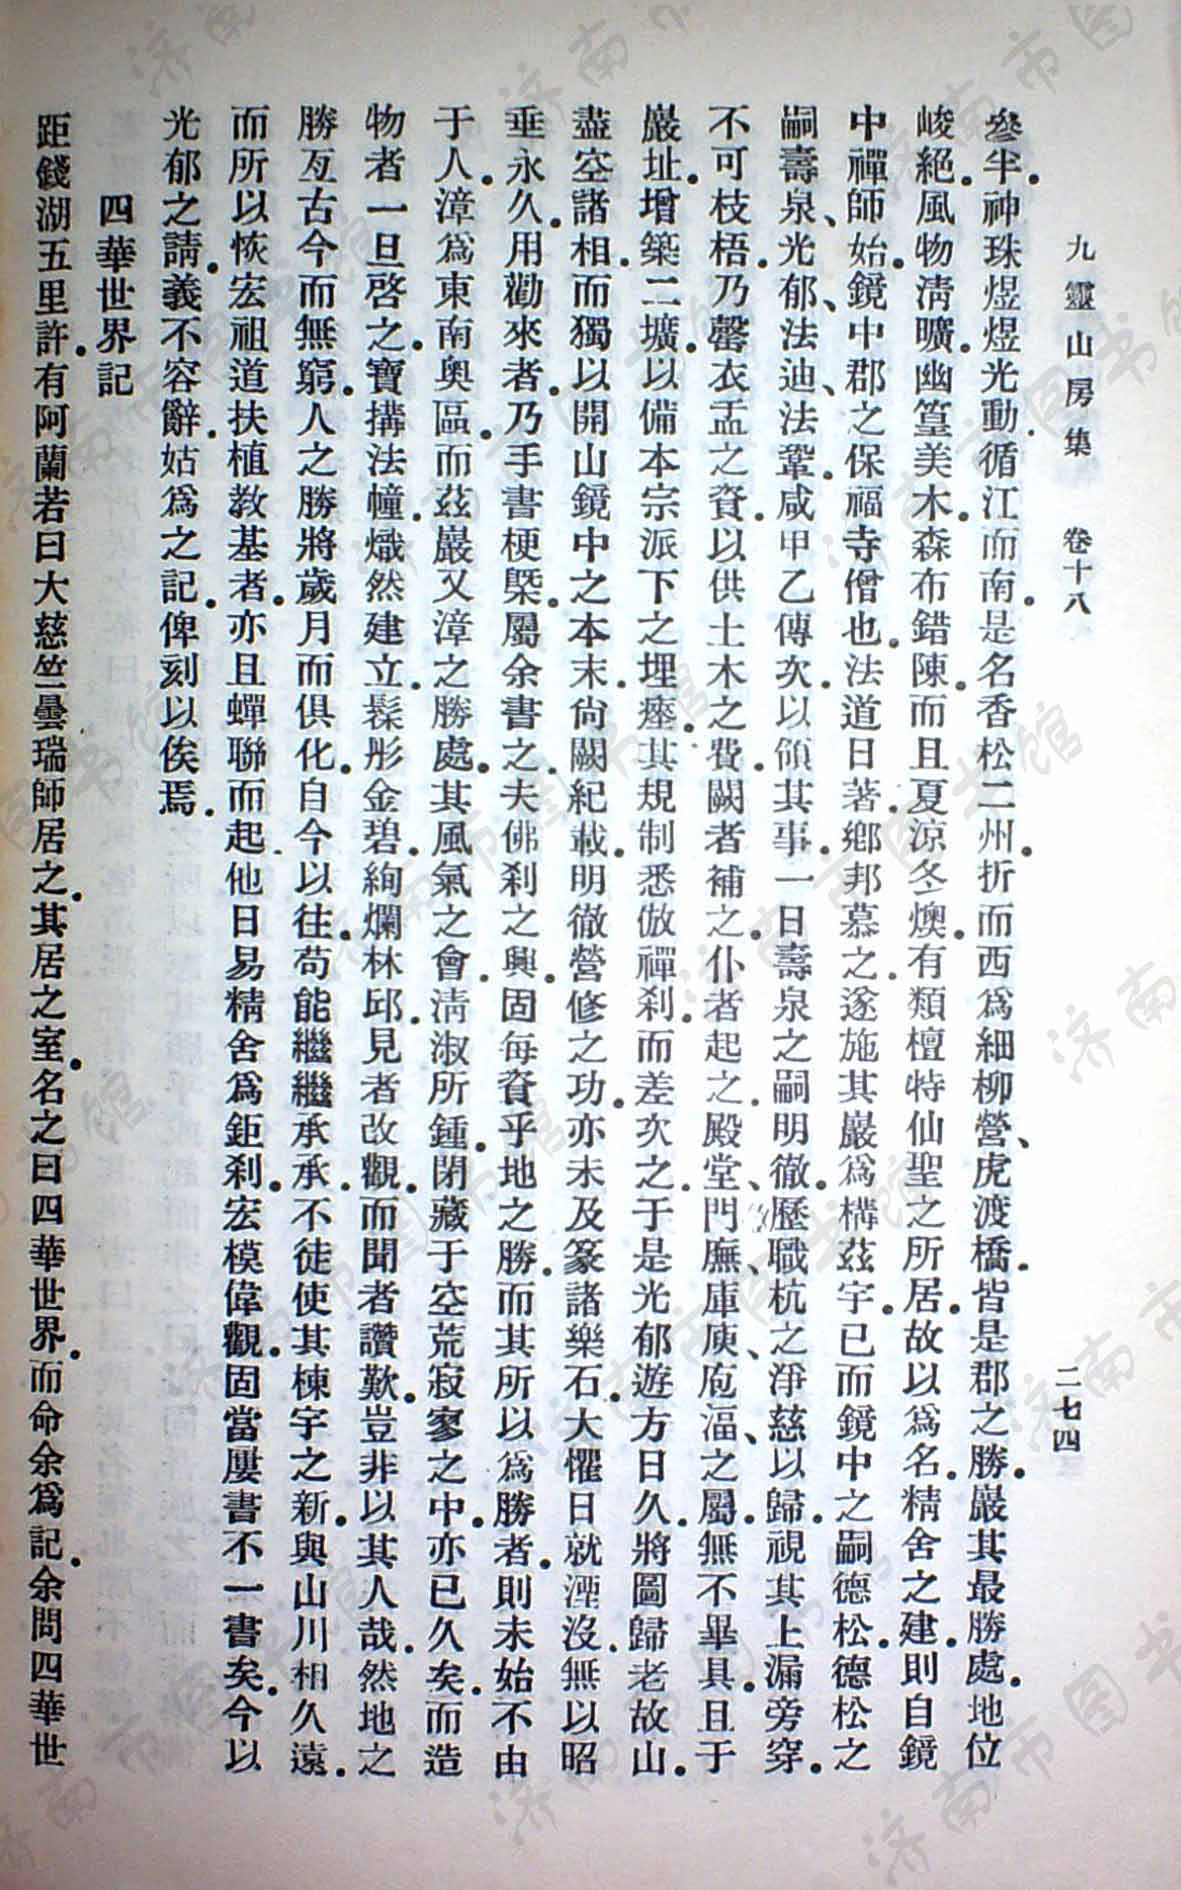 九靈山房集　卷十八　二七四
參半。神珠煜煜光動。循江而南。是名香松二州。折而西爲細柳營、虎渡橋。皆是郡之勝。巖其最勝處。地位
峻絕。風物淸曠。幽篁美木。森布錯陳。而且夏涼冬燠。有類檀特仙聖之所居。故以爲名。精舍之建。則自鏡
中禪師始。鏡中郡之保福寺僧也。法道日著。鄉邦慕之。遂施其巖爲構茲宇。已而鏡中之嗣德松。德松之
嗣壽泉、光郁、法迪、法鞏。咸甲乙傳次。以領其事。一日壽泉之嗣明徹。歷職杭之淨慈以歸。視其上漏旁穿。
不可枝梧。乃罄衣盂之資。以供土木之費。闕者補之。仆者起之。殿堂、門廡、庫庾、庖湢之屬。無不畢具。且于
巖址。增築二壙。以備本宗派下之埋瘞。其規制悉倣禪刹。而差次之。于是光郁遊方日久。將圖歸老故山。
盡空諸相。而獨以開山鏡中之本末。尙闕紀載。明徹營修之功。亦未及篆諸樂石。大懼日就湮沒。無以昭
垂永久。用勸來者。乃手書梗槩。屬余書之。夫佛刹之興。固每資乎地之勝。而其所以爲勝者。則未始不由
于人。漳爲東南奧區。而茲巖又漳之勝處。其風氣之會。淸淑所鍾。閉藏于空荒寂寥之中。亦已久矣。而造
物者一旦啓之。寶搆法幢。熾然建立。髹彤金碧。絢爛林邱。見者改觀。而聞者讚歎。豈非以其人哉。然地之
勝亙古今而無窮。人之勝將歲月而俱化。自今以往。苟能繼繼承承。不徒使其棟宇之新。與山川相久遠。
而所以恢宏祖道扶植教基者。亦且蟬聯而起。他日易精舍爲鉅刹。宏模偉觀。固當屢書不一書矣。今以
光郁之請。義不容辭。姑爲之記。俾刻以俟焉。
四華世界記
距錢湖五里許。有阿蘭若曰大慈竺曇瑞師居之。其居之室。名之曰四華世界。而命余爲記。余問四華世